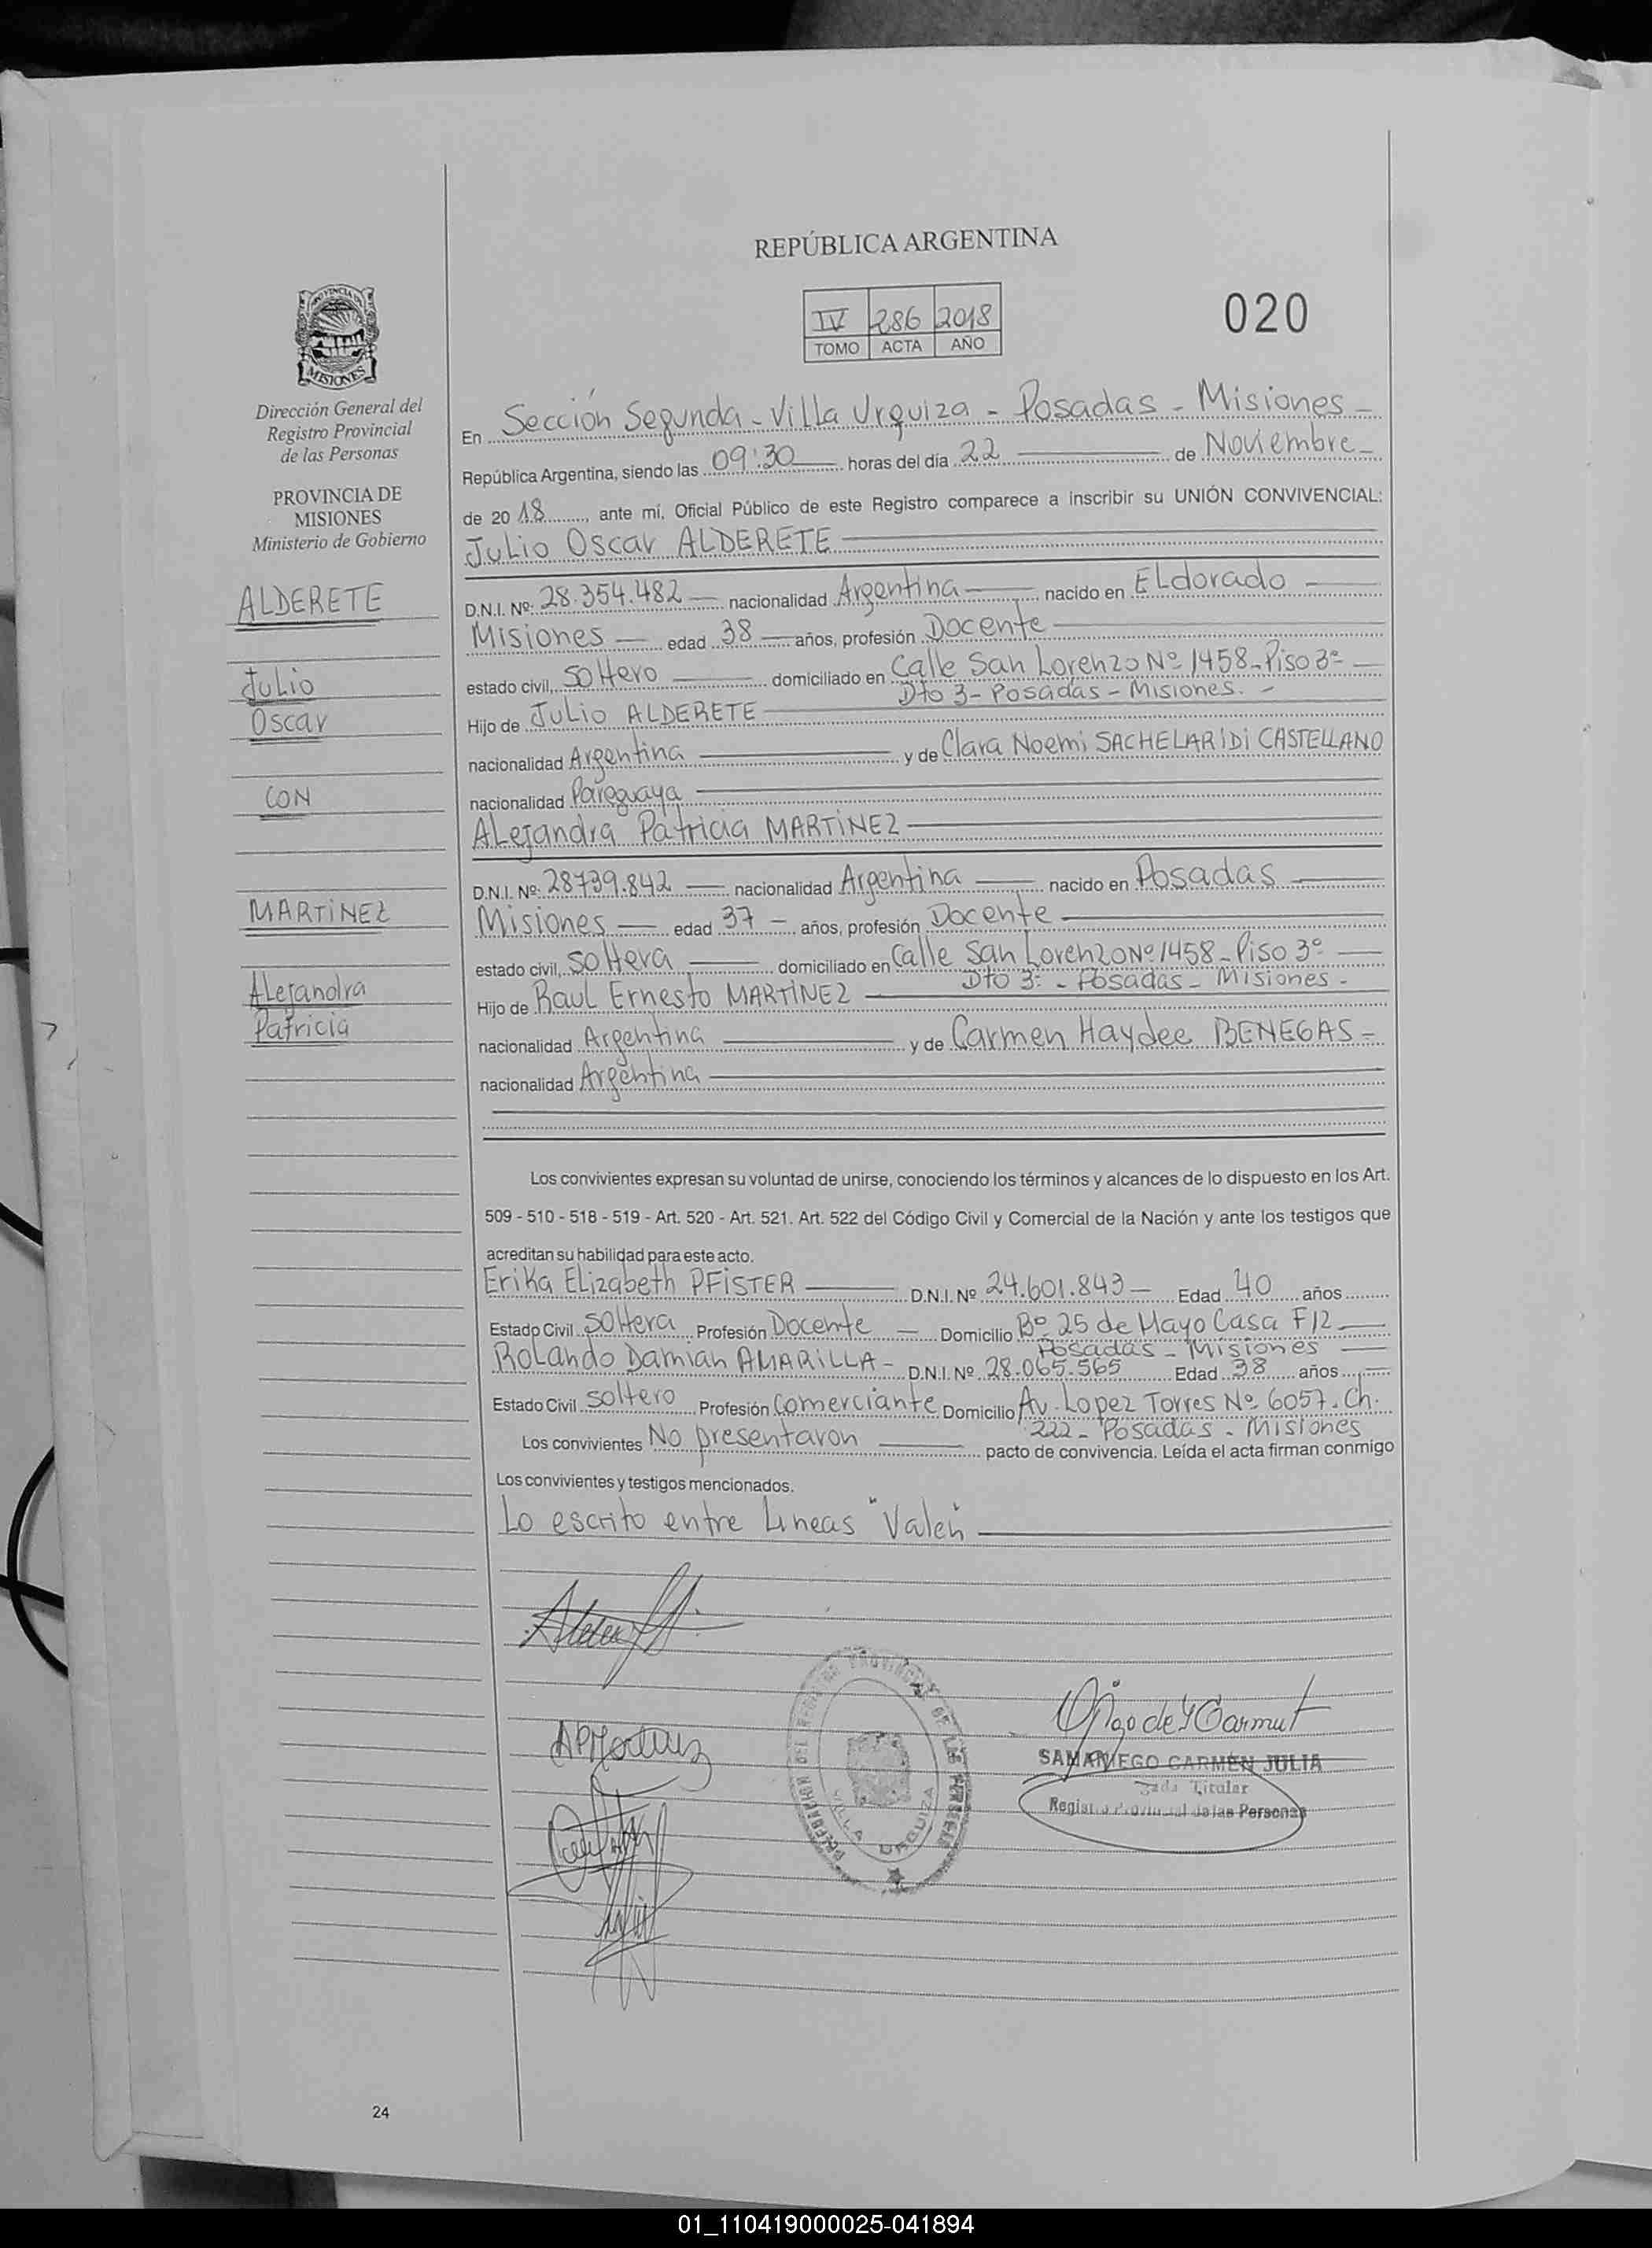 REPÚBLICA ARGENTINA
IV 286 2018
TOMO ACTA AÑO
020
MISIONES
Dirección General del
Registro Provincial
de las Personas
PROVINCIA DE
MISIONES
Ministerio de Gobierno
ALDERETE
Julio
Oscar
CON
MARTINEZ
Alejandra
Patricia
En Sección Segunda - Villa Urquiza - Posadas - Misiones -
República Argentina, siendo las 09:30 horas del día 22 de Noviembre -
de 2018, ante mí, Oficial Público de este Registro comparece a inscribir su UNIÓN CONVIVENCIAL:
Julio Oscar ALDERETE
D.N.I. Nº: 28.354.482 nacionalidad Argentina nacido en ELdorado
Misiones edad 38 años, profesión Docente
estado civil, soltero domiciliado en Calle San Lorenzo Nº 1458 - Piso 3º
Dto 3 - Posadas - Misiones. -
Hijo de Julio ALDERETE
nacionalidad Argentina y de Clara Noemi SACHELARIDI CASTELLANO
nacionalidad Paraguaya
ALejandra Patricia MARTINEZ
D.N.I. Nº: 28739.842 nacionalidad Argentina nacido en Posadas
Misiones edad 37 años, profesión Docente
estado civil, soltera domiciliado en Calle San Lorenzo Nº 1458 - Piso 3º
Dto 3: - Posadas - Misiones -
Hijo de Raul Ernesto MARTINEZ
nacionalidad Argentina y de Carmen Haydee BENEGAS -
nacionalidad Argentina
Los convivientes expresan su voluntad de unirse, conociendo los términos y alcances de lo dispuesto en los Art.
509 - 510 - 518 - 519 - Art. 520 - Art. 521. Art. 522 del Código Civil y Comercial de la Nación y ante los testigos que
acreditan su habilidad para este acto.
Erika Elizabeth PFISTER D.N.I. Nº 24.601.843 Edad 40 años
Estado Civil soltera Profesión Docente Domicilio Bº 25 de Mayo Casa F12
Posadas - Misiones
Rolando Damian AMARILLA - D.N.I. Nº 28.065.565 Edad 38 años
Estado Civil soltero Profesión Comerciante Domicilio Av. Lopez Torres Nº 6057. Ch.
222 - Posadas - Misiones
Los convivientes No presentaron pacto de convivencia. Leída el acta firman conmigo
Los convivientes y testigos mencionados.
Lo escrito entre Lineas "Valen
VILLA URQUIZA
SAMANIEGO CARMEN JULIA
Titular
Registro Provincial de las Personas
24
01_110419000025-041894